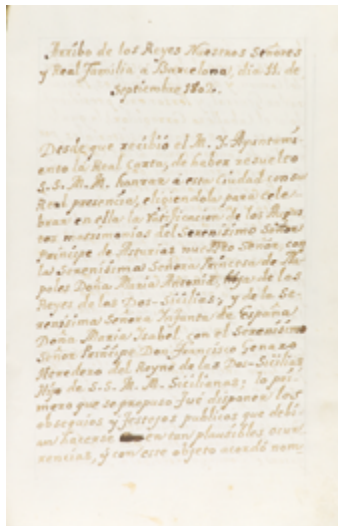 Arribo de los Reyes Nuestros Señores
y Real Familia a Barcelona, dia 11. de
Septiembre 1802.
Desde que recibió el M. Y. Ayuntami-
ento la Real Carta, de haber resuelto
S.S. M.M. honrar à esta Ciudad con su
Real presencia, eligiendola para cele-
brar en ella la ratificacion de los Augus-
tos matrimonios del Serenisimo Señor
Principe de Asturias nuestro Señor, con
la Serenisima Señora Princesa de Na-
poles Doña Maria Antonia, Hija de los
Reyes de las Dos-Sicilias; y de la Se-
renisima Señora Ynfanta de España
Doña Maria Ysabel, con el Serenisimo
Señor Principe Don Francisco Genaro
Heredero del Reyno de las Dos-Sicilias
Hijo de S.S. M.M. Sicilianas; lo pri-
mero que se propuso fué disponer los
obsequios y festejos publicos que debi-
an hacerse en tan plausibles ocur-
rencias, y con este objeto acordó nom-